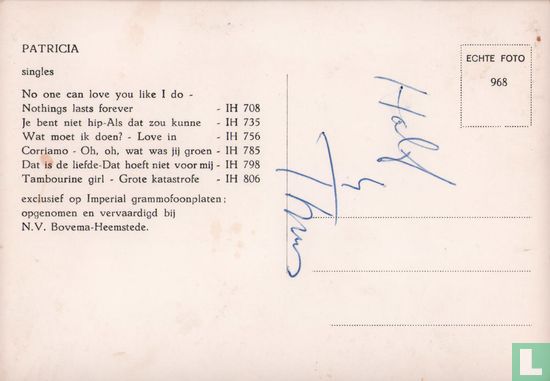 PATRICIA
singles
No one can love you like I do -
Nothings lasts forever - IH 708
Je bent niet hip-Als dat zou kunne - IH 735
Wat moet ik doen? - Love in - IH 756
Corriamo - Oh, oh, wat was jij groen - IH 785
Dat is de liefde-Dat hoeft niet voor mij - IH 798
Tambourine girl - Grote katastrofe - IH 806
exclusief op Imperial grammofoonplaten:
opgenomen en vervaardigd bij
N.V. Bovema-Heemstede.
ECHTE FOTO
968
Half
L